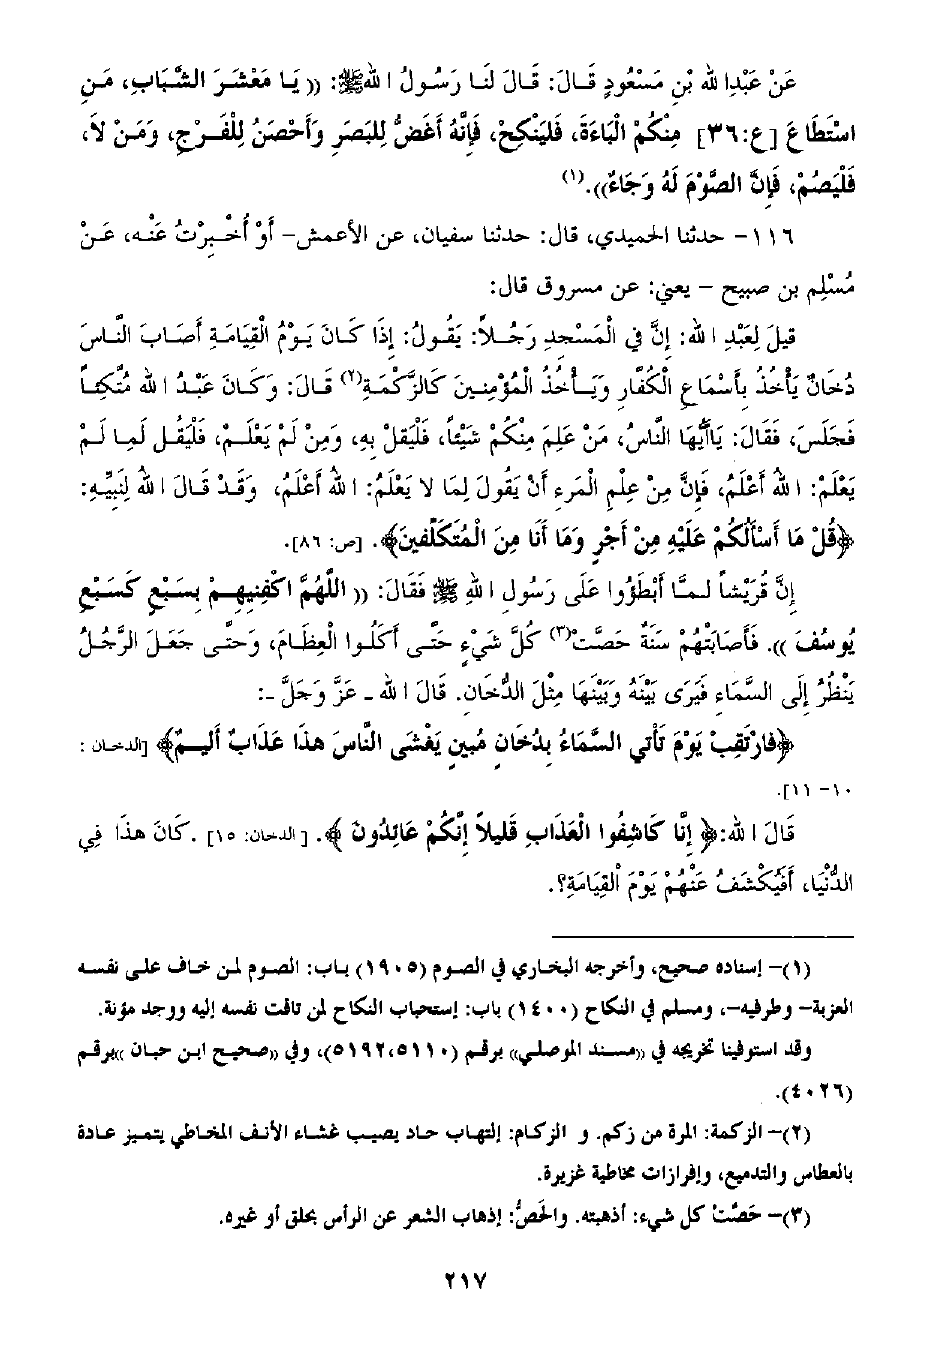 عَنْ عَبْدِا لله بْنِ مَسْعُودٍ قَالَ: قَالَ لَنَا رَسُولُ ا للهِ ﷺ: (( يَا مَعْشَرَ الشَّبَابِ، مَنِ
اسْتَطَاعَ [ع:٣٦] مِنْكُمْ الْبَاءَةَ، فَلْيَنْكِحْ، فَإِنَّهُ أَغَضُّ لِلْبَصَرِ وَأَحْصَنُ لِلْفَرْجِ، وَمَنْ لاَ،
فَلْيَصُمْ، فَإِنَّ الصَّوْمَ لَهُ وِجَاءٌ)).(١)
١١٦- حدثنا الحميدي، قال: حدثنا سفيان، عن الأعمش- أَوْ أُخْبِرْتُ عَنْه، عَنْ
مُسْلِم بن صبيح - يعني: عن مسروق قال:
قيلَ لِعَبْدِ ا لله: إنَّ في الْمَسْجدِ رَجُلاً: يَقُولُ: إذَا كَانَ يَوْمُ الْقِيَامَةِ أصَابَ النَّاسَ
دُخَانٌ يَأْخُذُ بأسْمَاعِ الْكُفَّارِ وَيَأْخُذُ الْمُؤْمِنِينَ كَالزَّكْمَةِ(٢) قَالَ: وَكَانَ عَبْدُ ا لله مُتَّكِئاً
فَجَلَسَ، فَقَالَ: يَاأَيُّهَا النَّاسُ، مَنْ عَلِمَ مِنْكُمْ شَيْئاً، فَلْيَقلْ بِهِ، وَمِنْ لَمْ يَعْلَمْ، فَلْيَقُل لَمِا لَمْ
يَعْلَمْ: ا للهُ أعْلَمُ، فَإِنَّ مِنْ عِلْمِ الْمَرءِ أنْ يَقُولَ لِمَا لا يَعْلَمُ: ا للهُ أعْلَمُ، وَقَدْ قَالَ ا للهُ لِنَبِيِّهِ:
﴿قُلْ مَا أسْأَلُكُمْ عَلَيْهِ مِنْ أجْرٍ وَمَا أنَا مِنَ الْمُتَكَلِّفينَ﴾. [ص: ٨٦].
إنَّ قُرَيْشاً لَمَّا أبْطَؤُوا عَلَى رَسُولِ ا للهِ ﷺ فَقَالَ: (( اللَّهُمَّ اكْفِنِيهِمْ بِسَبْعٍ كَسَبْعِ
يُوسُفَ )). فَأصَابَتْهُمْ سَنَةٌ حَصَّت(٣) كُلَّ شَيْءٍ حَتَّى أكَلُوا الْعِظَامَ، وَحَتَّى جَعَلَ الرَّجُلُ
يَنْظُرُ إلَى السَّمَاءِ فَيَرَى بَيْنَهُ وَبَيْنَهَا مِثْلَ الدُّخَانِ. قَالَ ا لله ـ عَزَّ وَجَلَّ ـ:
﴿فَارْتَقِبْ يَوْمَ تَأْتِي السَّمَاءُ بِدُخَانٍ مُبينٍ يَغْشَى النَّاسَ هذَا عَذَابٌ أليمٌ﴾ [الدخان :
١٠- ١١].
قَالَ ا لله:﴿ إنَّا كَاشِفُوا الْعَذَابِ قَليلاً إنَّكُمْ عَائِدُونَ ﴾. [ الدخان: ١٥] .كَانَ هذَا فِي
الدُّنْيَا، أَفَيُكْشَفُ عَنْهُمْ يَوْمَ الْقِيَامَةِ؟.
(١)- إسناده صحيح، وأخرجه البخاري في الصوم (١٩٠٥) باب: الصوم لمن خاف على نفسه
العزبة- وطرفيه-، ومسلم في النكاح (١٤٠٠) باب: إستحباب النكاح لمن تاقت نفسه إليه ووجد مؤنة.
وقد استوفينا تخريجه في «مسند الموصلي» برقم (٥١١٠،٥١٩٢)، وفي «صحيح ابن حبان »برقم
(٤٠٢٦).
(٢)- الزكمة: المرة من زكم. و الزكام: إلتهاب حاد يصيب غشاء الأنف المخاطي يتميز عادة
بالعطاس والتدميع، وإفرازات مخاطية غزيرة.
(٣)- حَصَّتْ كل شيء: أذهبته. والحَصُّ: إذهاب الشعر عن الرأس بحلق أو غيره.
٢١٧